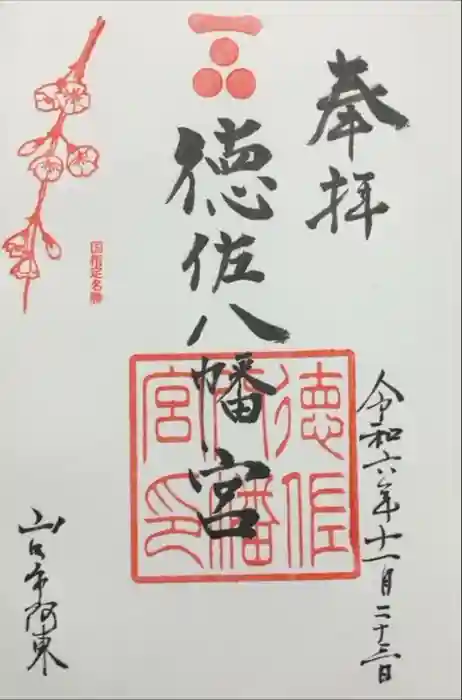 奉拝
徳佐八幡宮
徳佐八幡宮印
令和六年十一月二十三日
国指定名勝
山口市阿東